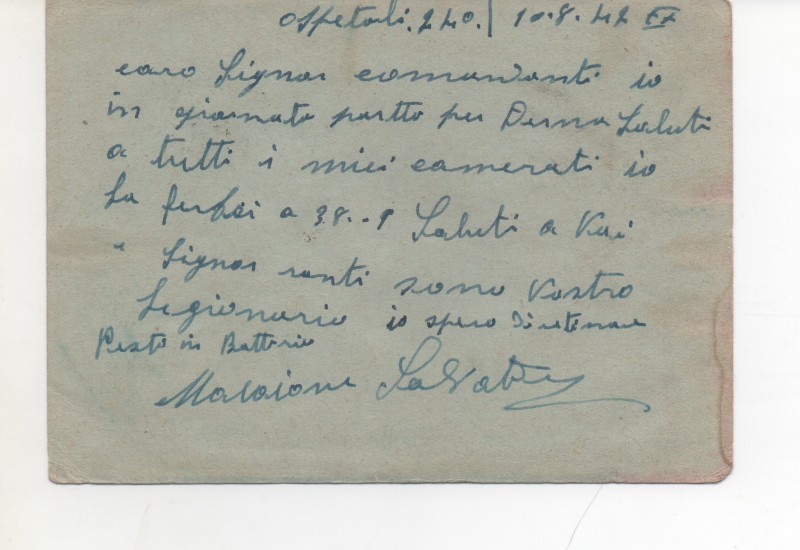 Ospetali. 240. 10.8.42 XX
caro Signor comandanti io
in giornata partto per Derna Saluti
a tutti i miei camerati io
la ferbi a 38..9 Saluti a Voi
Signor tenti sono Vostro
Legionario io spero di
Presto in Batteria
Salvatore